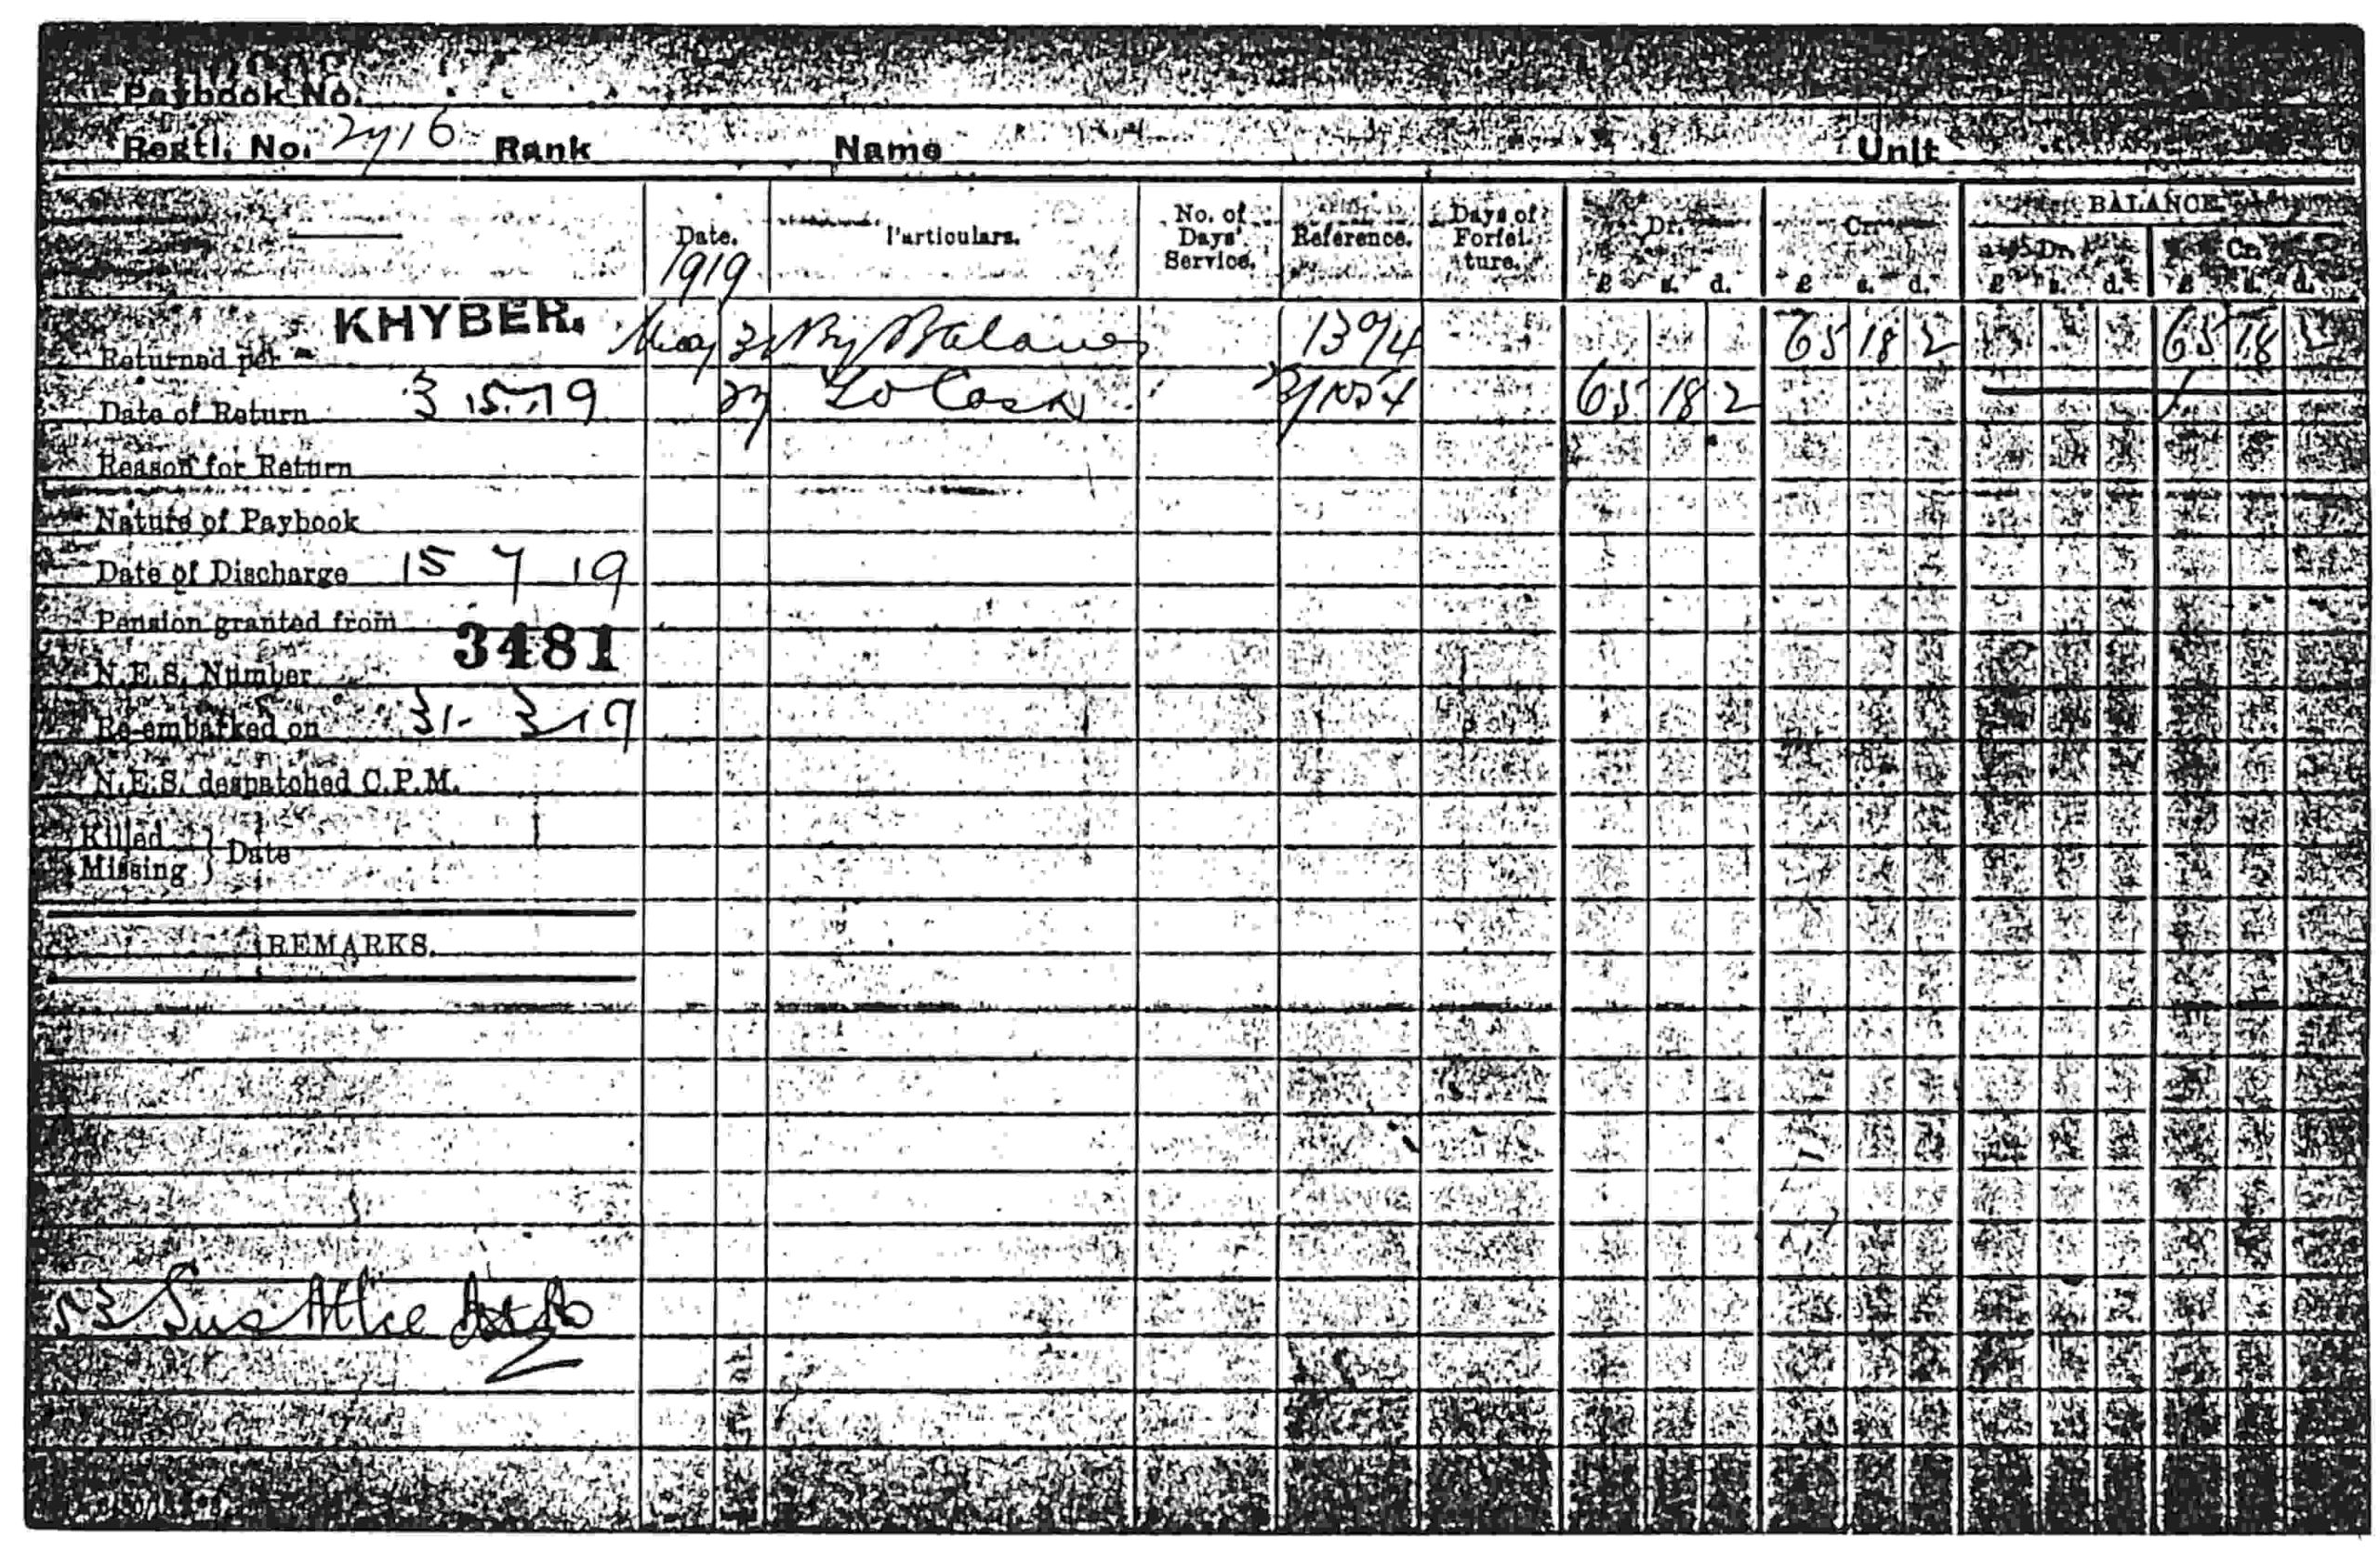 Paybook No.
Regtl. No. 2716 Rank Name Unit
Date. Particulars. No. of Days' Service. Reference. Days of Forfeiture. Dr. Cr. BALANCE.
Dr. Cr.
1919 £ s. d. £ s. d. £ s. d. £ s. d.
Returned per KHYBER. May By Balance 65 18 2 65 18 2
Date of Return 3.5.19 27 To Cash 65 18 2
Reason for Return
Nature of Paybook
Date of Discharge 15 7 19
Pension granted from
N.E.S. Number 3481
Re-embarked on 31-3-19
N.E.S. despatched C.P.M.
Killed } Date
Missing }
REMARKS.
53 Sus Alice